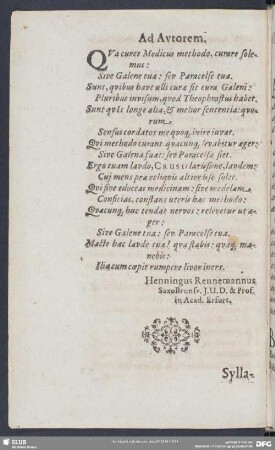 Ad Avtorem.
QVa curet Medicus methodo, curare sole-
mus:
Sive Galene tua: sev Paracelse tua.
Sunt, qvibus havt ulli cura sit cura Galeni:
Pluribus invisum, qvod Theophrastus habet.
Sunt qvîs longe alia, & melior sententia: qvo-
rum
Sensus cordatos me qvoq, ivire juvat.
Qvi methodo curant qvacunq, levabitur æger:
Sive Galena fuat: sev Paracelsa siet.
Ergo tuam lavdo, Clarissime, lavdem:
Cui mens præ reliqvis altior isse solet.
Qvi sive edoceas medicinam: sive medelam
Conficias, constans uteris hac methodo:
Qvacunq, huc tendat nervos: relevetur ut æ-
ger:
Sive Galene tua: sev Paracelse tua.
Macte hac lavde tua! qva stabis: qvaq, ma-
nebis:
Iliacum capit rumpere livor iners.
Henningus Rennemannus
SaxoBrunsv. J.U.D. & Prof.
in Acad. Erfurt.
Sylla-
SLUB
DFG